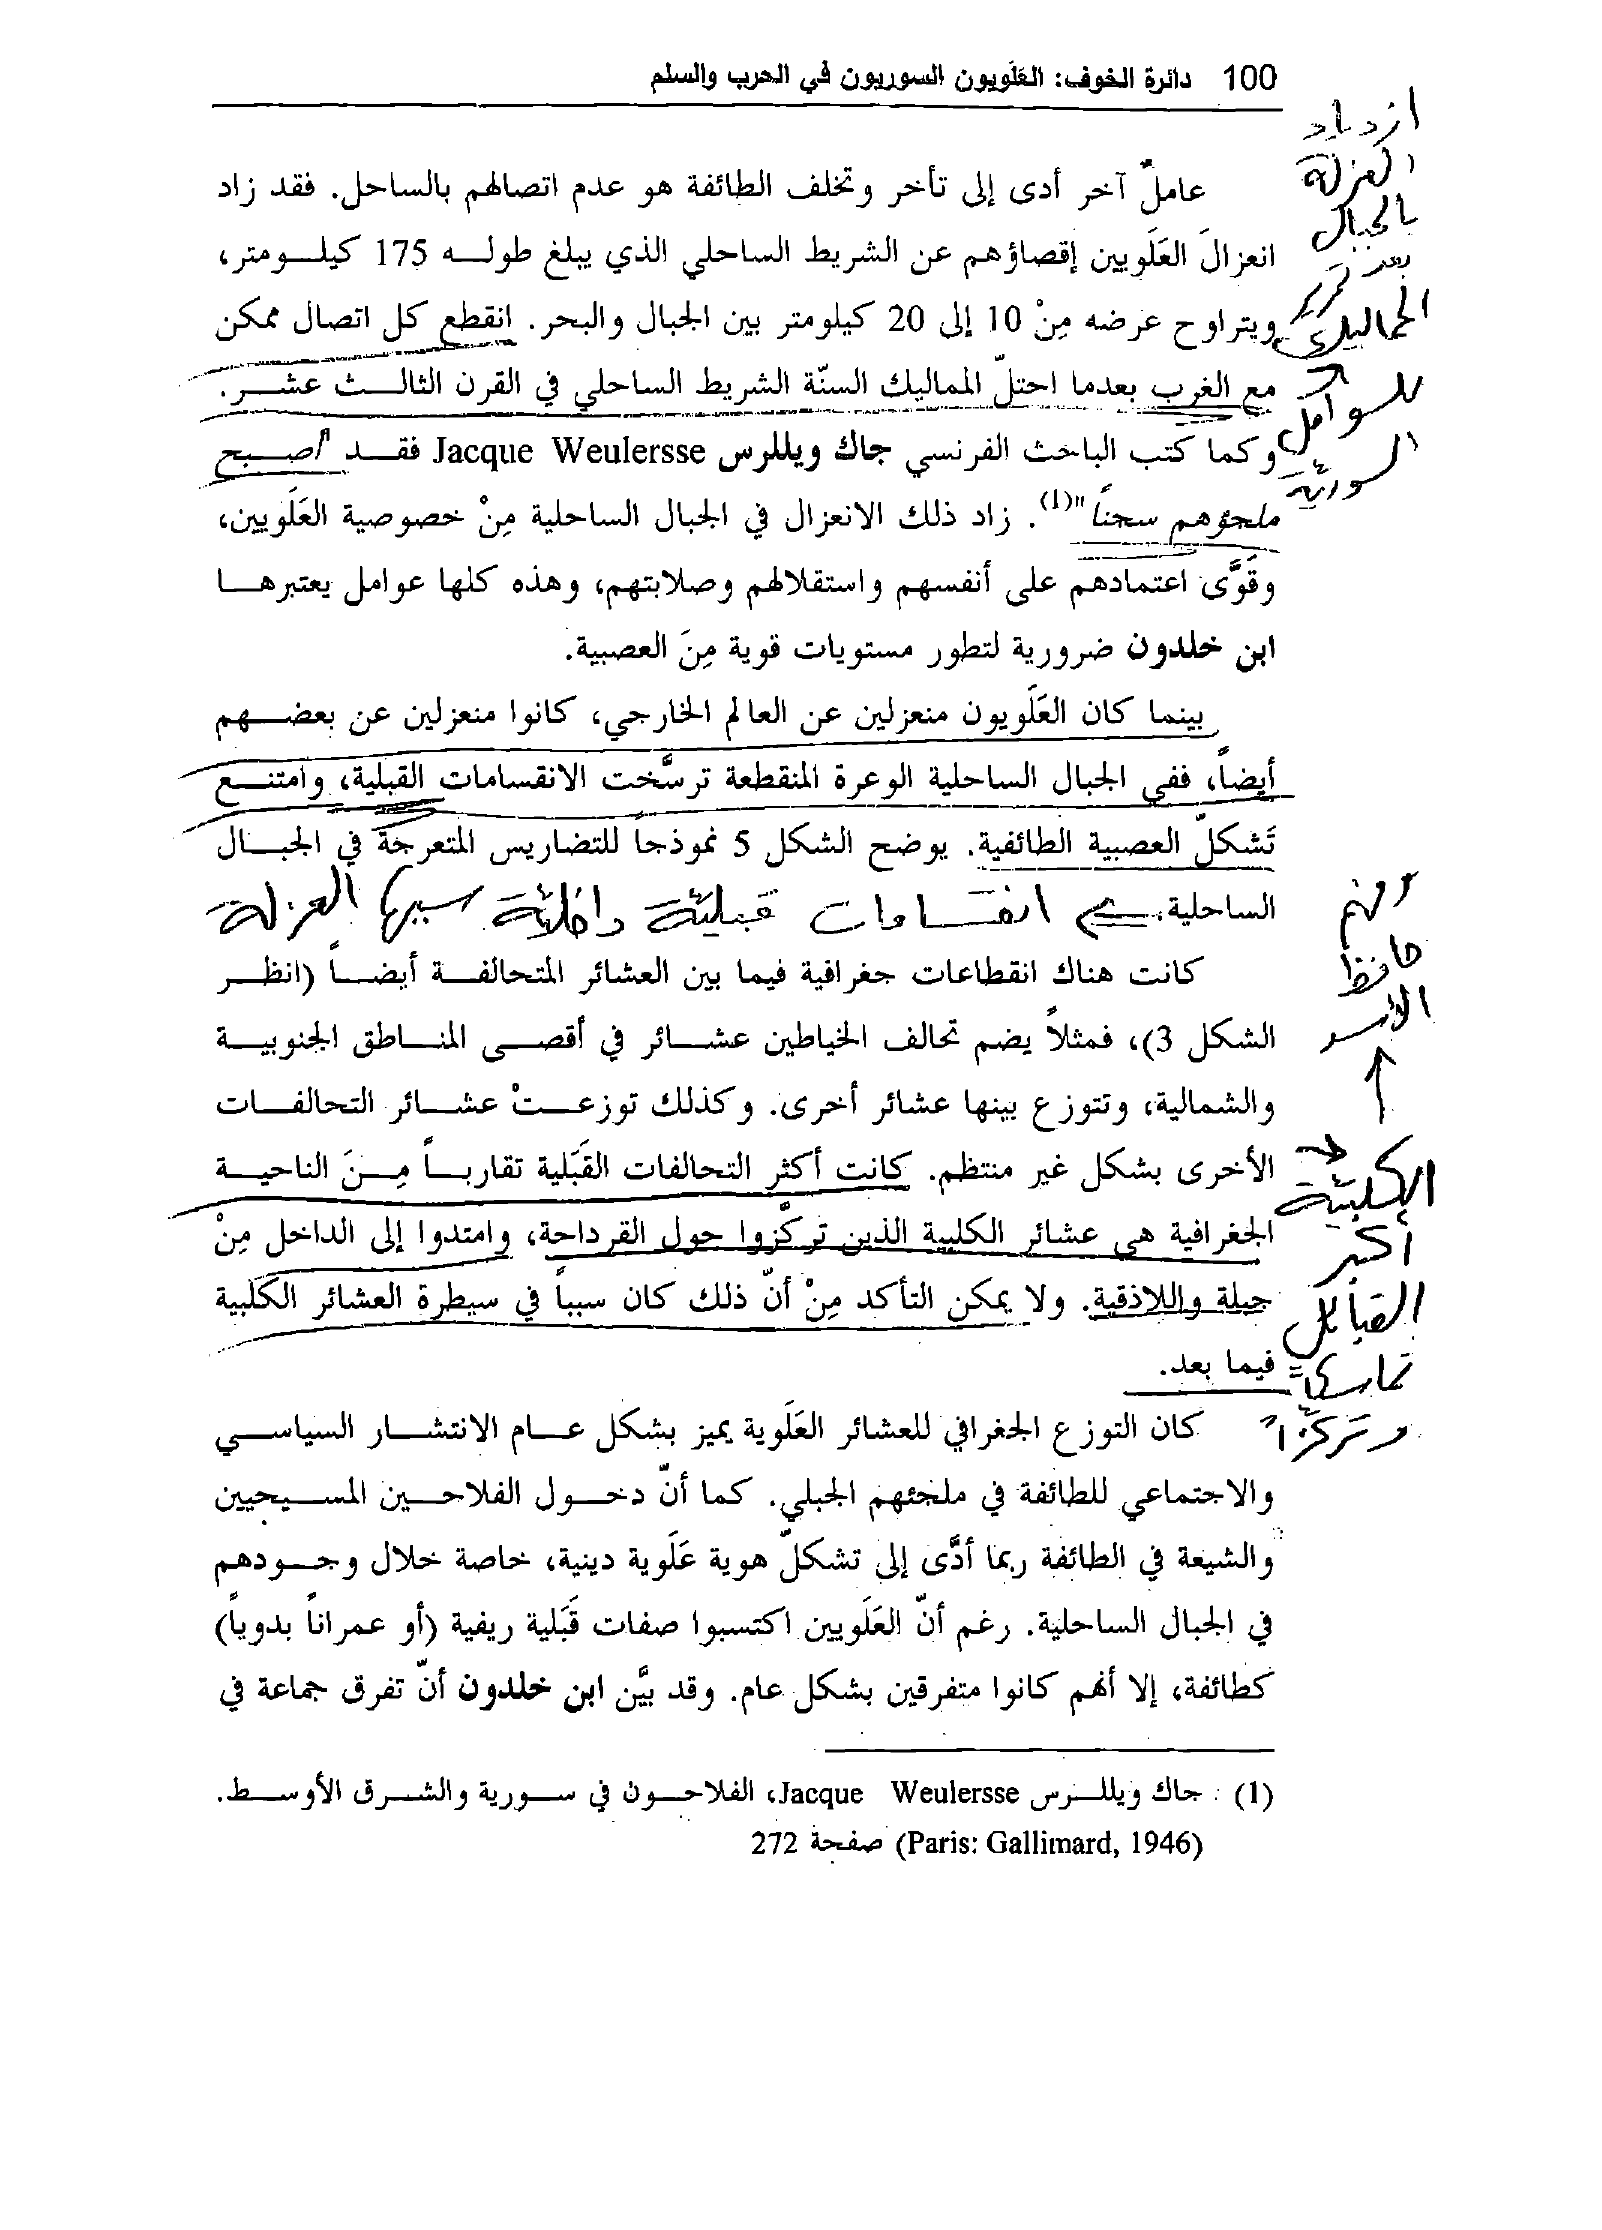 100 دائرة الخوف: العَلَويون السوريون في الحرب والسلم
عاملٌ آخر أدى إلى تأخر وتخلف الطائفة هو عدم اتصالهم بالساحل. فقد زاد
انعزالَ العَلَويين إقصاؤهم عن الشريط الساحلي الذي يبلغ طولـــه 175 كيلـــومتر،
ويتراوح عرضه مِنْ 10 إلى 20 كيلومتر بين الجبال والبحر. انقطع كل اتصال ممكن
مع الغرب بعدما احتلّ المماليك السنّة الشريط الساحلي في القرن الثالـــث عشـــر.
وكما كتب الباحث الفرنسي جاك ويللرس Jacque Weulersse فقـــد "أصـــبح
ملجؤهم سجناً"(1). زاد ذلك الانعزال في الجبال الساحلية مِنْ خصوصية العَلَويين،
وقَوَّى اعتمادهم على أنفسهم واستقلالهم وصلابتهم، وهذه كلها عوامل يعتبرهـــا
ابن خلدون ضرورية لتطور مستويات قوية مِنَ العصبية.
بينما كان العَلَويون منعزلين عن العالم الخارجي، كانوا منعزلين عن بعضـــهم
أيضاً، ففي الجبال الساحلية الوعرة المنقطعة ترسَّخت الانقسامات القبلية، وامتنـــع
تَشكلّ العصبية الطائفية. يوضح الشكل 5 نموذجاً للتضاريس المتعرجة في الجبـــال
الساحلية. ⇐ انقسامات قبليّة داخليّة سببها العزلة
كانت هناك انقطاعات جغرافية فيما بين العشائر المتحالفـــة أيضـــاً (انظـــر
الشكل 3)، فمثلاً يضم تحالف الخياطين عشـــائر في أقصـــى المنـــاطق الجنوبيـــة
والشمالية، وتتوزع بينها عشائر أخرى. وكذلك توزعـــتْ عشـــائر التحالفـــات
الأخرى بشكل غير منتظم. كانت أكثر التحالفات القَبَلية تقاربـــاً مِـــنَ الناحيـــة
الجغرافية هي عشائر الكلبية الذين تركَّزوا حول القرداحة، وامتدوا إلى الداخل مِنْ
جبلة واللاذقية. ولا يمكن التأكد مِنْ أنّ ذلك كان سبباً في سيطرة العشائر الكَلبية
فيما بعد.
كان التوزع الجغرافي للعشائر العَلَوية يميز بشكل عـــام الانتشـــار السياســـي
والاجتماعي للطائفة في ملجئهم الجبلي. كما أنّ دخـــول الفلاحـــين المســـيحيين
والشيعة في الطائفة ربما أدَّى إلى تشكلّ هوية عَلَوية دينية، خاصة خلال وجـــودهم
في الجبال الساحلية. رغم أنّ العَلَويين اكتسبوا صفات قَبَلية ريفية (أو عمراناً بدوياً)
كطائفة، إلا أنهم كانوا متفرقين بشكل عام. وقد بيَّن ابن خلدون أنّ تفرق جماعة في
(1) جاك ويللـــرس Jacque Weulersse، الفلاحـــون في ســـورية والشـــرق الأوســـط.
(Paris: Gallimard, 1946) صفحة 272
ازدياد
العزلة
بالجبال
بعد تمركز
المماليك
للسواحل
السوريّة
ومنهم
حافظ
الأسد
↑
الكلبيّة
أكبر
القبائل
تماسكاً
وتركزّاً